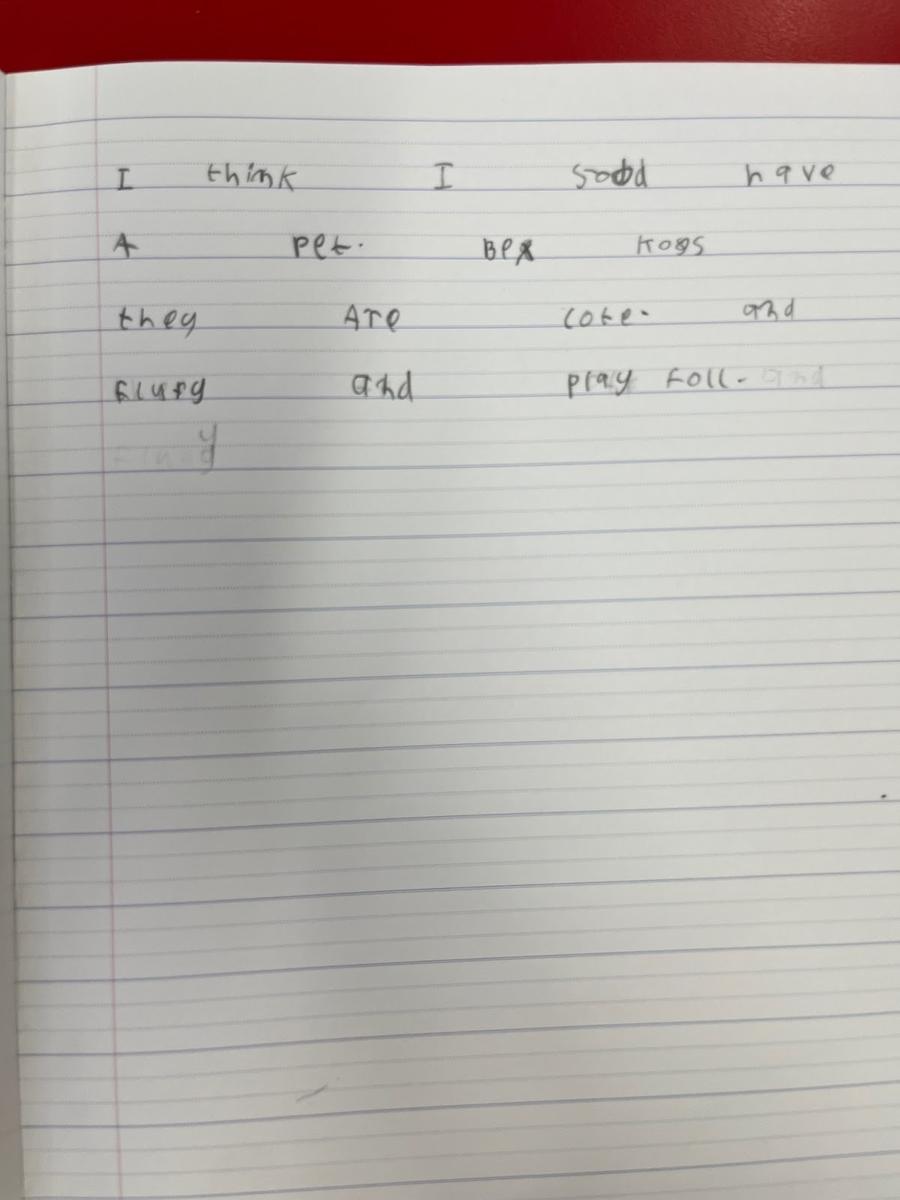 I think I sood have
A pet. Bex kogs
they Are cote. and
flufy and play foll. and
y